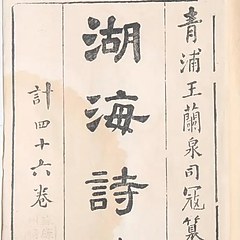 青浦王蘭泉司寇纂
湖海詩
計四十六卷